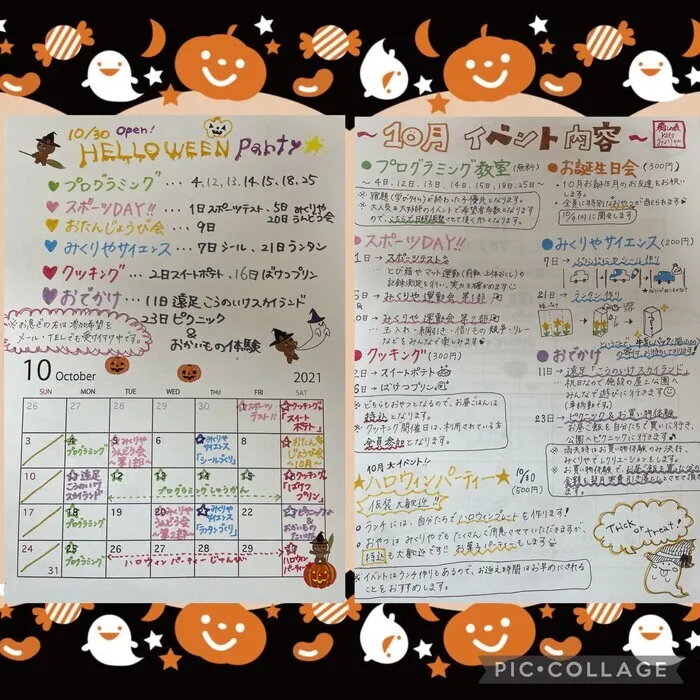 10/30 Open!
HELLOWEEN Party
プログラミング ... 4, 12, 13, 14, 15, 18, 25
スポーツDAY!! ... 1日スポーツテスト 5日 みくりや
20日 うんどう会
おたんじょうび会 ... 9日
みくりやサイエンス ... 7日 シール, 21日 ランタン
クッキング ... 2日スイートポテト, 16日 ばけつプリン
おでかけ ... 11日 遠足 こうのいけスカイランド
23日 ピクニック
&
おかいもの体験
※お急ぎの方は参加希望を
メール・TELでも受け付け中です。
10 October 2021
SUN MON TUE WED THU FRI SAT
26 27 28 29 30 1 スポーツテスト!! 2 クッキング「スイートポテト」
3 4 プログラミング 5 みくりやうんどう会〜第1部〜 6 7 みくりやサイエンス「シールづくり」 8 9 おたんじょうび会〜10月〜
10 11 遠足こうのいけスカイランド 12 13 14 15 プログラミングしゅうかん 16 クッキング「ばけつプリン」
17 18 プログラミング 19 20 みくりやうんどう会〜第2部〜 21 みくりやサイエンス「ランタンづくり」 22 23 ピクニック&おかいものたいけん
24 25 プログラミング 26 27 28 29 ハロウィンパーティーじゅんび 30 ハロウィンパーティー
31
〜10月 イベント内容〜
プログラミング教室(無料)
〜4日、12日、13日、14日、15日、18日、25日〜
※大人気&大好評のイベントで希望者多数となりますので、こちらで日程調整させて頂く形となります。
お誕生日会(300円)
・10月お誕生月のお友達をお祝いします。
・全員に特別なおやつが出されます
スポーツDAY!!
1日→スポーツテスト
とび箱やマット運動(前転・上体おこし)の
5日→みくりや運動会 第1部
20日→みくりや運動会 第2部
玉入れ・綱引き・借りもの競争・リレーなどをみんなで楽しみます
みくりやサイエンス(200円)
7日→ぷくぷくシール作り
21日→ランタン作り
クッキング(300円)
2日→スイートポテト
16日→ばけつプリン
※どちらもおやつとなるので、お昼ごはんは持込となります。
※クッキング開催日はご利用されている方全員参加となります。
おでかけ
11日→遠足「こうのいけスカイランド」
祝日なので施設の屋上公園へみんなで遊びに行きます!
(車移動です)
23日→ピクニック&お買い物体験
お昼ご飯を自分たちで買いに行き、公園へピクニックに行きます
※雨天時はお買い物体験のみ決行、みくりやでレクリエーションをします。
10月 大イベント!!
★ハロウィンパーティー★ 10/30
(500円)
仮装大歓迎!!
ランチには、自分たちでハロウィンプレートを作ります!
おやつはみくりやでもたくさんご用意させていただきますが、持込も大歓迎です!! お菓子パーティーもします
※イベントはランチ作りもあるので、お迎え時間はお早めにされることをおすすめします。
Trick or Treat!
PIC•COLLAGE